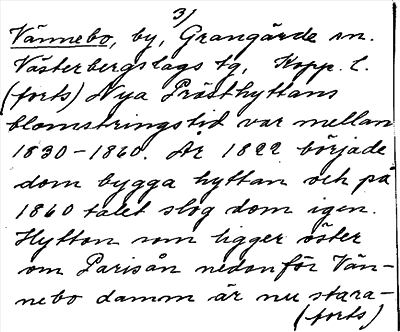 3/
Vännebo, by, Grangärde sn.
Västerbergslags tg, Kopp. l.
(forts) Nya Prästhyttans
blomstringstid var mellan
1830-1860. År 1822 började
dom bygga hyttan och på
1860 talet slog dom igen.
Hyttan som ligger öster
om Parisån nedanför Vän-
nebo damm är nu stara-
(forts)